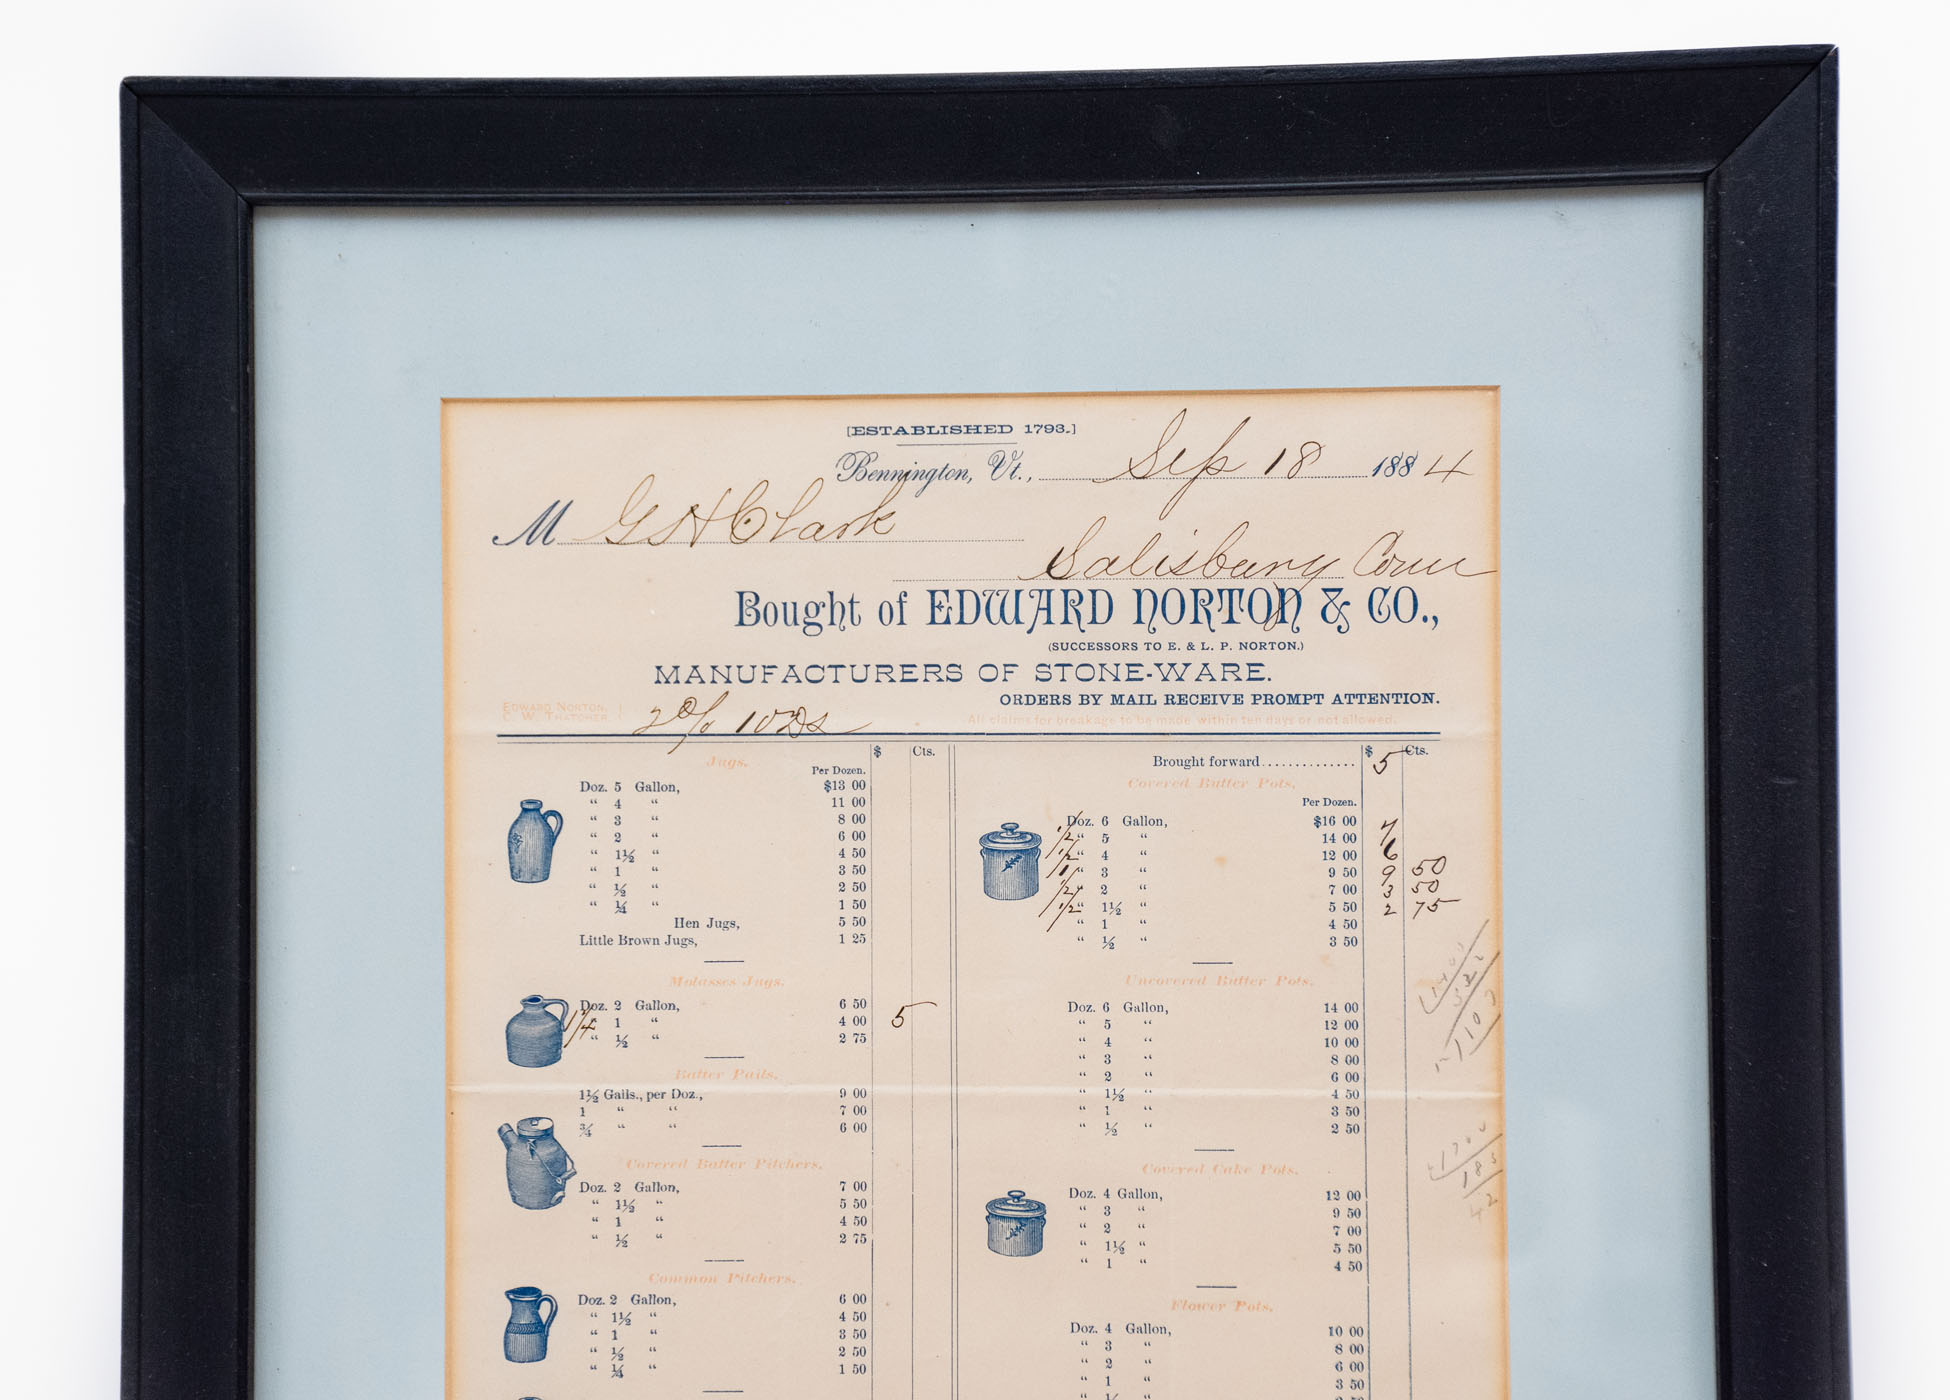 [ESTABLISHED 1793.]
Bennington, Vt., Sep 18 1884
M G H Clark
Salisbury Conn
Bought of EDWARD NORTON & CO.,
(SUCCESSORS TO E. & L. P. NORTON.)
MANUFACTURERS OF STONE-WARE.
ORDERS BY MAIL RECEIVE PROMPT ATTENTION.
EDWARD NORTON,
C. W. THATCHER.
2% 10 Ds
All claims for breakage to be made within ten days or not allowed.
$ Cts.
Jugs.
Per Dozen.
Doz. 5 Gallon, $13 00
" 4 " 11 00
" 3 " 8 00
" 2 " 6 00
" 1½ " 4 50
" 1 " 3 50
" ½ " 2 50
" ¼ " 1 50
Hen Jugs, 5 50
Little Brown Jugs, 1 25
Molasses Jugs.
Doz. 2 Gallon, 6 50
1¼ " 1 " 4 00 5
" ½ " 2 75
Butter Pails.
1½ Galls., per Doz., 9 00
1 " " 7 00
¾ " " 6 00
Covered Butter Pitchers.
Doz. 2 Gallon, 7 00
" 1½ " 5 50
" 1 " 4 50
" ½ " 2 75
Common Pitchers.
Doz. 2 Gallon, 6 00
" 1½ " 4 50
" 1 " 3 50
" ½ " 2 50
" ¼ " 1 50
$ Cts.
Brought forward.............. 5
Covered Butter Pots.
Per Dozen.
Doz. 6 Gallon, $16 00
1/2 " 5 " 14 00 7
1/2 " 4 " 12 00 6
1 " 3 " 9 50 9 50
1/2 " 2 " 7 00 3 50
1/2 " 1½ " 5 50 2 75
" 1 " 4 50
" ½ " 3 50
Uncovered Butter Pots.
Doz. 6 Gallon, 14 00
" 5 " 12 00
" 4 " 10 00
" 3 " 8 00
" 2 " 6 00
" 1½ " 4 50
" 1 " 3 50
" ½ " 2 50
Covered Cake Pots.
Doz. 4 Gallon, 12 00
" 3 " 9 50
" 2 " 7 00
" 1½ " 5 50
" 1 " 4 50
Flower Pots.
Doz. 4 Gallon, 10 00
" 3 " 8 00
" 2 " 6 00
" 1 " 3 50